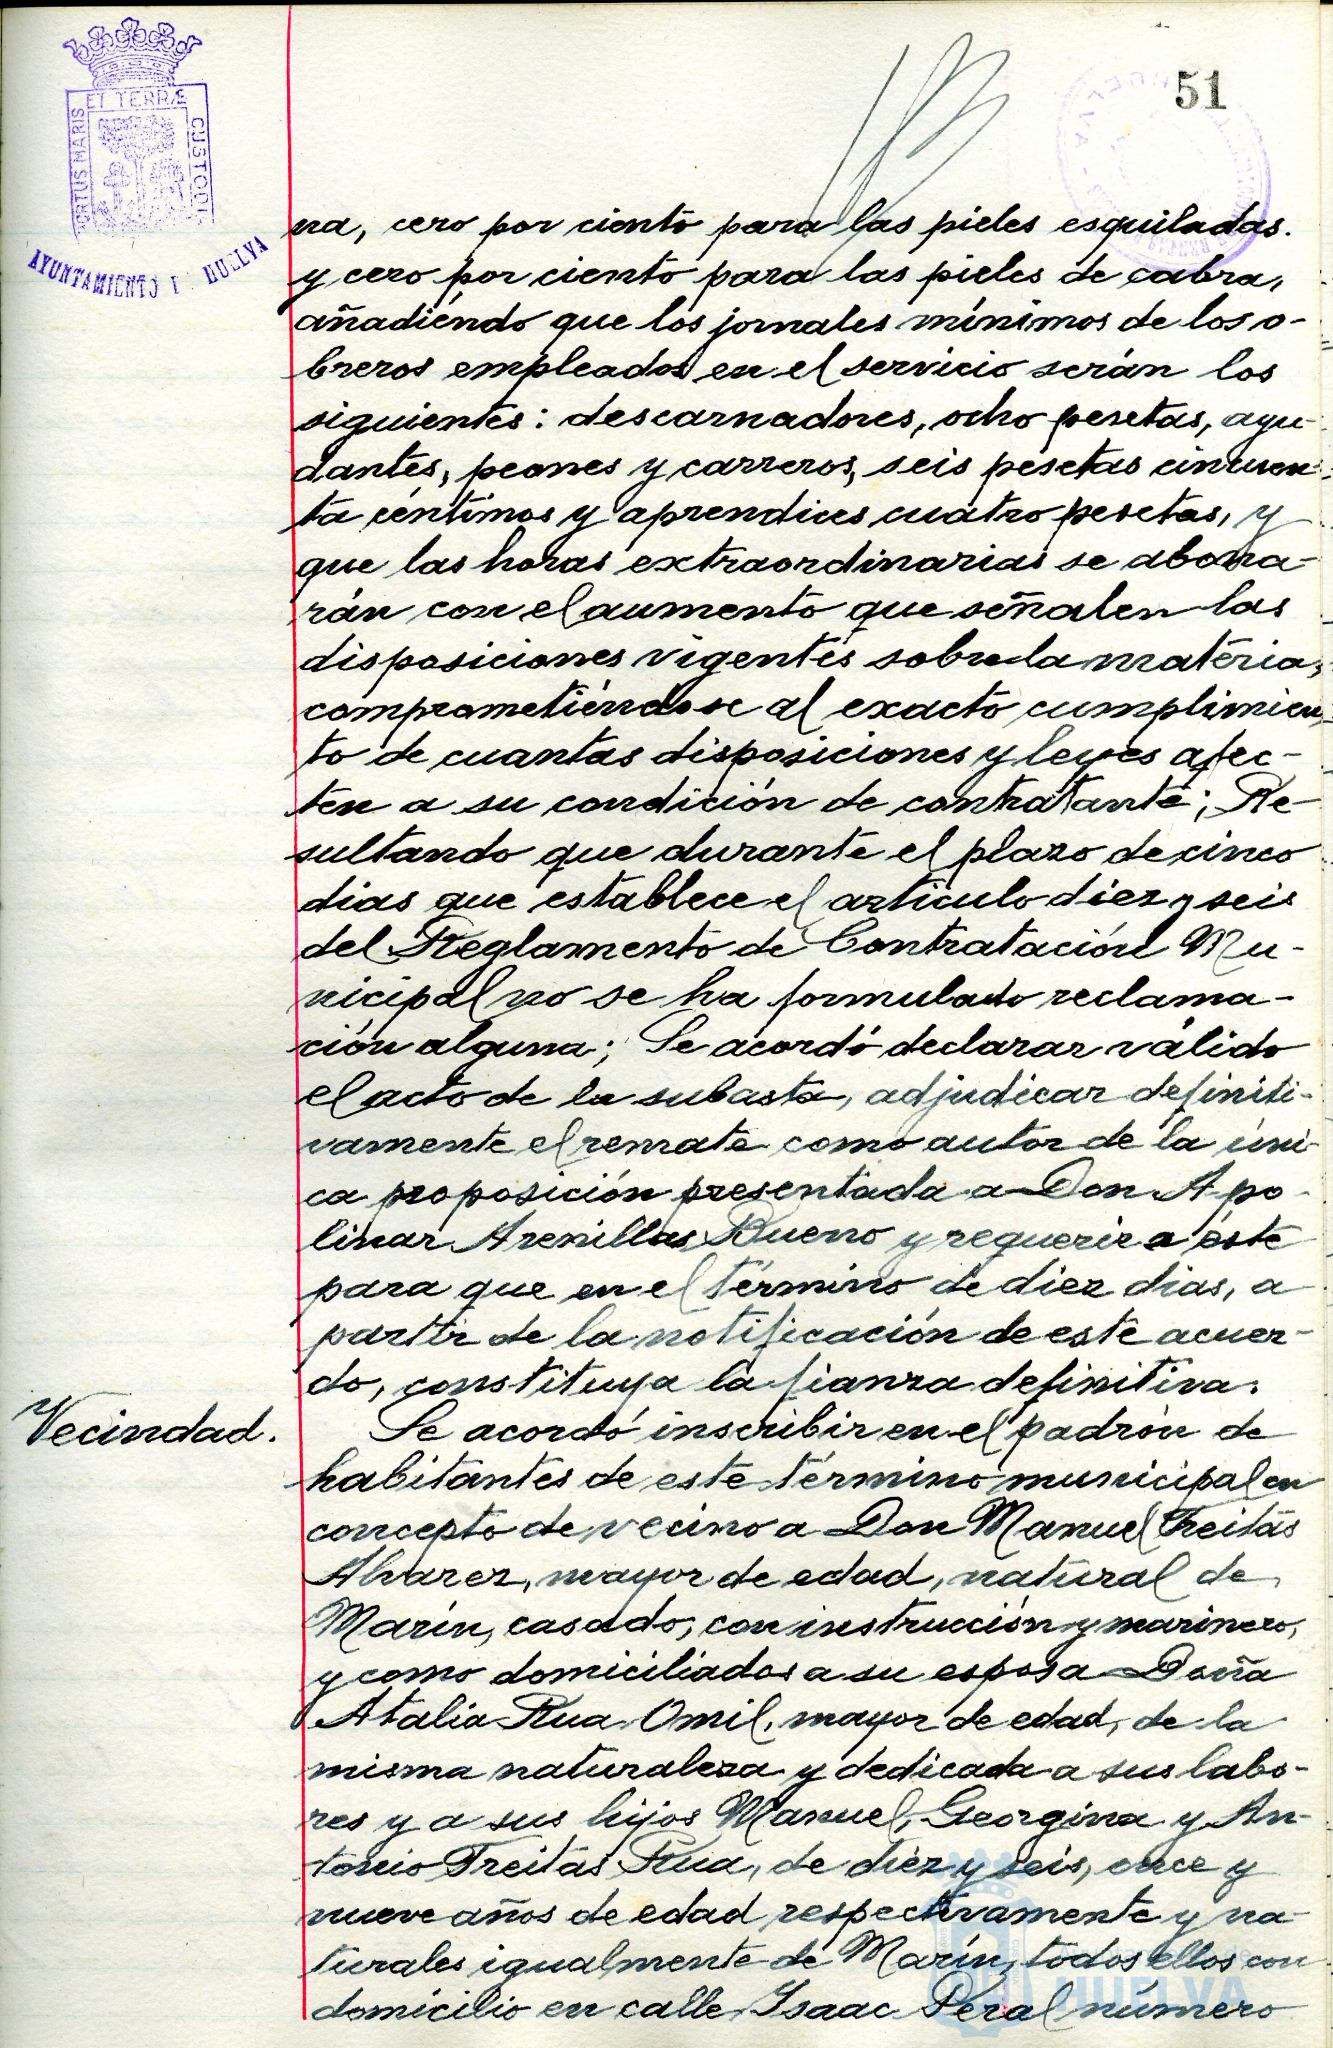 51
PORTUS MARIS
ET TERRÆ
CUSTODI
AYUNTAMIENTO DE HUELVA
HUELVA
na, cero por ciento para las pieles esquiladas.
y cero por ciento para las pieles de cabra,
añadiéndo que los jornales mínimos de los o-
breros empleados en el servicio serán los
siguientes: descarnadores, ocho pesetas, ayu-
dantes, peones y carreros, seis pesetas cincuen-
ta céntimos y aprendices cuatro pesetas, y
que las horas extraordinarias se abona-
rán con el aumento que señalen las
disposiciones vigentes sobre la materia,
comprometiéndose al exacto cumplimien-
to de cuantas disposiciones y leyes afec-
ten a su condición de contratante; Re-
sultando que durante el plazo de cinco
dias que establece el artículo diez y seis
del Reglamento de Contratación Mu-
nicipal no se ha formulado reclama-
ción alguna; Se acordó declarar válido
el acto de la subasta, adjudicar definiti-
vamente el remate como autor de la úni-
ca proposición presentada a Don Apo-
linar Arenillas Bueno y requerir a éste
para que en el término de diez dias, a
partir de la notificación de este acuer-
do, constituya la fianza definitiva.
Vecindad.
Se acordó inscribir en el padrón de
habitantes de este término municipal en
concepto de vecino a Don Manuel Freitas
Alvarez, mayor de edad, natural de
Marín, casado, con instrucción y marinero,
y como domiciliados a su esposa Doña
Atalia Rua Omil, mayor de edad, de la
misma naturaleza y dedicada a sus labo-
res y a sus hijos Manuel, Georgina y An-
tonio Freitas Rua, de diez y seis, once y
nueve años de edad respectivamente y na-
turales igualmente de Marín, todos ellos con
domicilio en calle Isaac Peral número
HUELVA